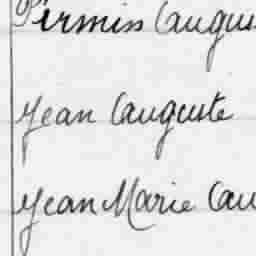 Firmin Caugus
Jean Cauguste
Jean Marie Cau